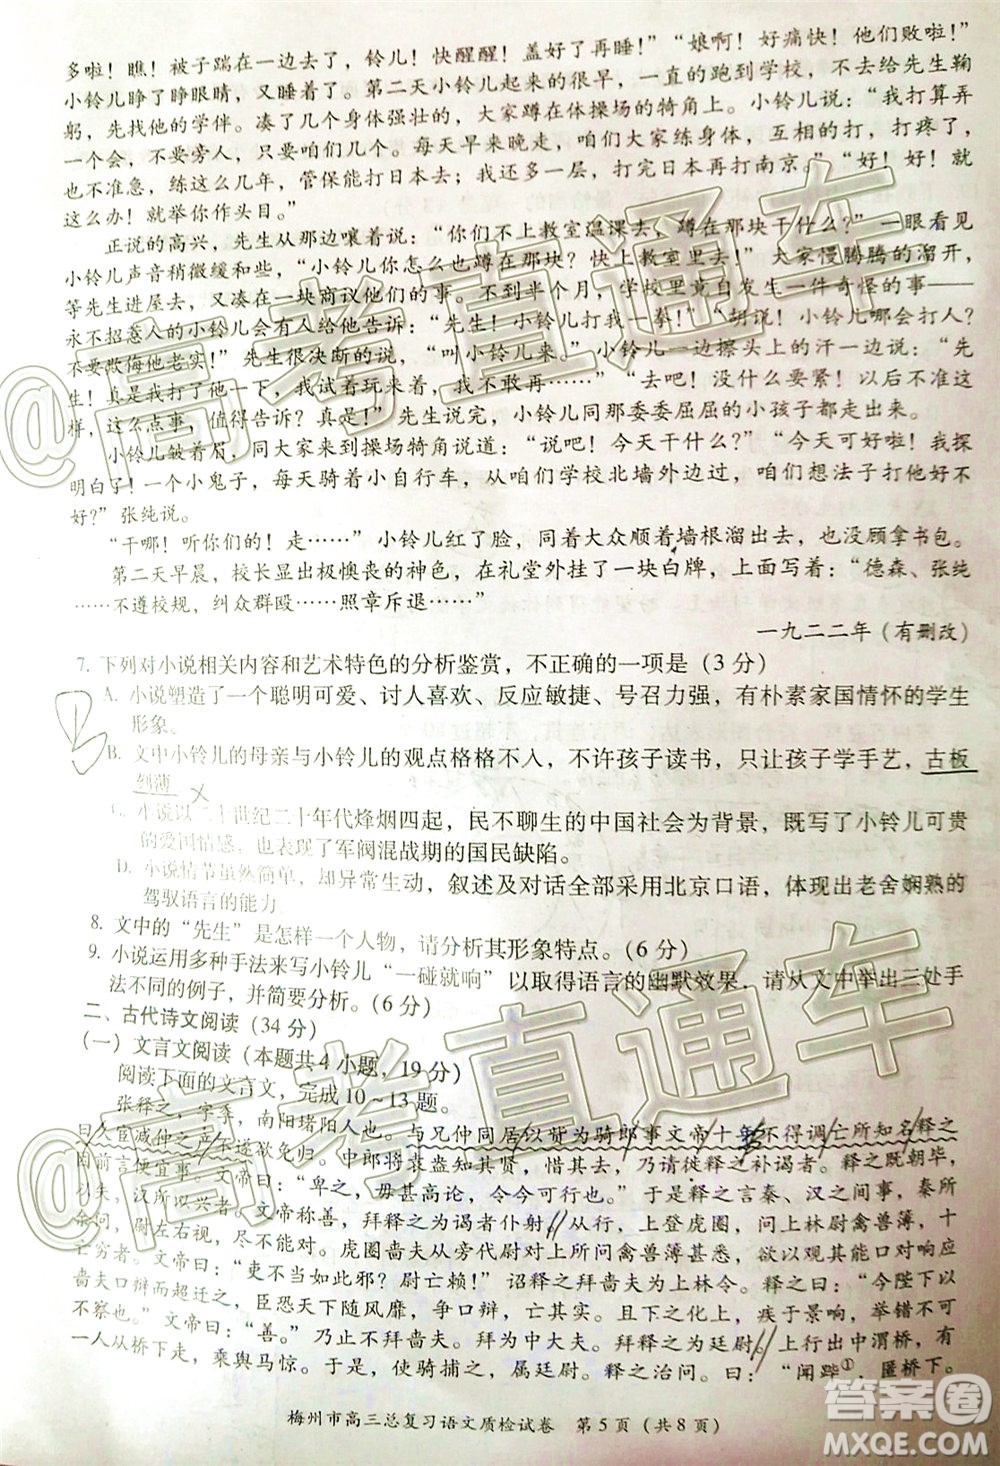 多啦！瞧！被子踹在一边去了，铃儿！快醒醒！盖好了再睡！”“娘啊！好痛快！他们败啦！”
小铃儿睁了睁眼睛，又睡着了。第二天小铃儿起来的很早，一直的跑到学校，不去给先生鞠
躬，先找他的学伴。凑了几个身体强壮的，大家蹲在体操场的犄角上。小铃儿说：“我打算弄
一个会，不要旁人，只要咱们几个。每天早来晚走，咱们大家练身体，互相的打，打疼了，
也不准急，练这么几年，管保能打日本去；我还多一层，打完日本再打南京。”“好！好！就
这么办！就举你作头目。”
正说的高兴，先生从那边嚷着说：“你们不上教室温课去，蹲在那块干什么？”一眼看见
小铃儿声音稍微缓和些，“小铃儿你怎么也蹲在那块？快上教室里去！”大家慢腾腾的溜开，
等先生进屋去，又凑在一块商议他们的事。不到半个月，学校里竟自发生一件奇怪的事——
永不招惹人的小铃儿会有人给他告诉：“先生！小铃儿打我一拳！”“胡说！小铃儿哪会打人？
不要欺侮他老实！”先生很决断的说，“叫小铃儿来。”小铃儿一边擦头上的汗一边说：“先
生！是我打了他一下，我试着玩来着，我不敢再……”“去吧！没什么要紧！以后不准这
样，这么点事，值得告诉？真是！”先生说完，小铃儿同那委委屈屈的小孩子都走出来。
小铃儿皱着眉，同大家来到操场犄角说道：“说吧！今天干什么？”“今天可好啦！我探
明白了！一个小鬼子，每天骑着小自行车，从咱们学校北墙外边过，咱们想法子打他好不
好？”张纯说。
“干哪！听你们的！走……”小铃儿红了脸，同着大众顺着墙根溜出去，也没顾拿书包。
第二天早晨，校长显出极懊丧的神色，在礼堂外挂了一块白牌，上面写着：“德森、张纯
……不遵校规，纠众群殴……照章斥退……”
一九二二年（有删改）
7. 下列对小说相关内容和艺术特色的分析鉴赏，不正确的一项是（3 分）
A. 小说塑造了一个聪明可爱、讨人喜欢、反应敏捷、号召力强，有朴素家国情怀的学生
形象。
B. 文中小铃儿的母亲与小铃儿的观点格格不入，不许孩子读书，只让孩子学手艺，古板
刻薄。
C. 小说以二十世纪二十年代烽烟四起，民不聊生的中国社会为背景，既写了小铃儿可贵
的爱国情感，也表现了军阀混战期的国民缺陷。
D. 小说情节虽然简单，却异常生动，叙述及对话全部采用北京口语，体现出老舍娴熟的
驾驭语言的能力。
8. 文中的“先生”是怎样一个人物，请分析其形象特点。（6 分）
9. 小说运用多种手法来写小铃儿“一碰就响”以取得语言的幽默效果，请从文中举出三处手
法不同的例子，并简要分析。（6 分）
二、古代诗文阅读（34 分）
（一）文言文阅读（本题共4 小题，19 分）
阅读下面的文言文，完成 10～13 题。
张释之，字季，南阳堵阳人也。与兄仲同居以赀为骑郎事文帝十年不得调亡所知名释之
曰久宦减仲之产不遂欲免归。中郎将袁盎知其贤，惜其去，乃请徙释之补谒者。释之既朝毕，
因前言便宜事。文帝曰：“卑之，毋甚高论，令今可行也。”于是释之言秦、汉之间事，秦所
以失，汉所以兴者。文帝称善，拜释之为谒者仆射。从行，上登虎圈，问上林尉禽兽薄，十
余问，尉左右视，尽不能对。虎圈啬夫从旁代尉对上所问禽兽薄甚悉，欲以观其能口对响应
亡穷者。文帝曰：“吏不当如此邪？尉亡赖！”诏释之拜啬夫为上林令。释之曰：“今陛下以
啬夫口辩而超迁之，臣恐天下随风靡，争口辩，亡其实。且下之化上，疾于景响，举错不可
不察也。”文帝曰：“善。”乃止不拜啬夫。拜为中大夫。拜释之为廷尉。上行出中渭桥，有
一人从桥下走，乘舆马惊。于是，使骑捕之，属廷尉。释之治问。曰：“闻跸①，匿桥下。
梅州市高三总复习语文质检试卷 第 5 页（共 8 页）
@高考直通车
@高考直通车
答案圈
MXQE.COM